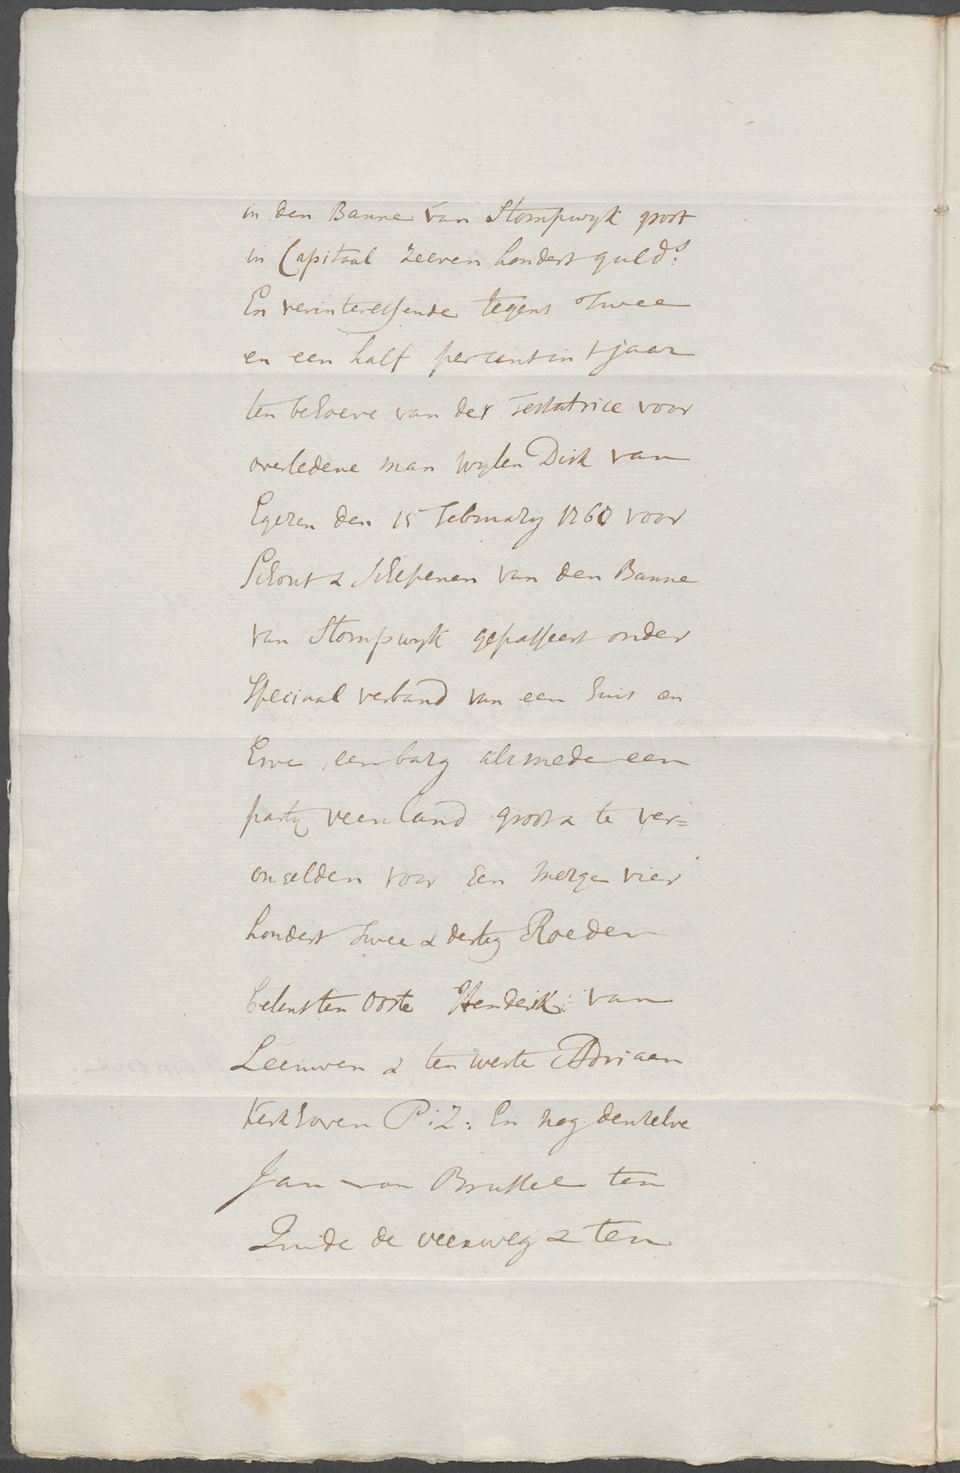 in den Banne van Stompwyk groot
in Capitaal zeeven hondert guld:s
En verinteressende tegens Twee
en een half percent in t jaar
ten behoeve van der Testatrice voor
overledene man wylen Dirk van
Egeren den 15 February 1760 voor
Schout & Schepenen van den Banne
van Stompwyk gepasseert onder
Speciaal verband van een huis en
Erve, een barg alsmede een
party veenland groot & te ver=
ongelden voor Een Merge vier
hondert Twee & dertig Roeden
belent ten Ooste Henderik van
Leeuwen & ten weste Adriaan
Kerkhoven P:Z: En nog denzelve
Jan van Brussel ten
Zuide de veenweg & ten